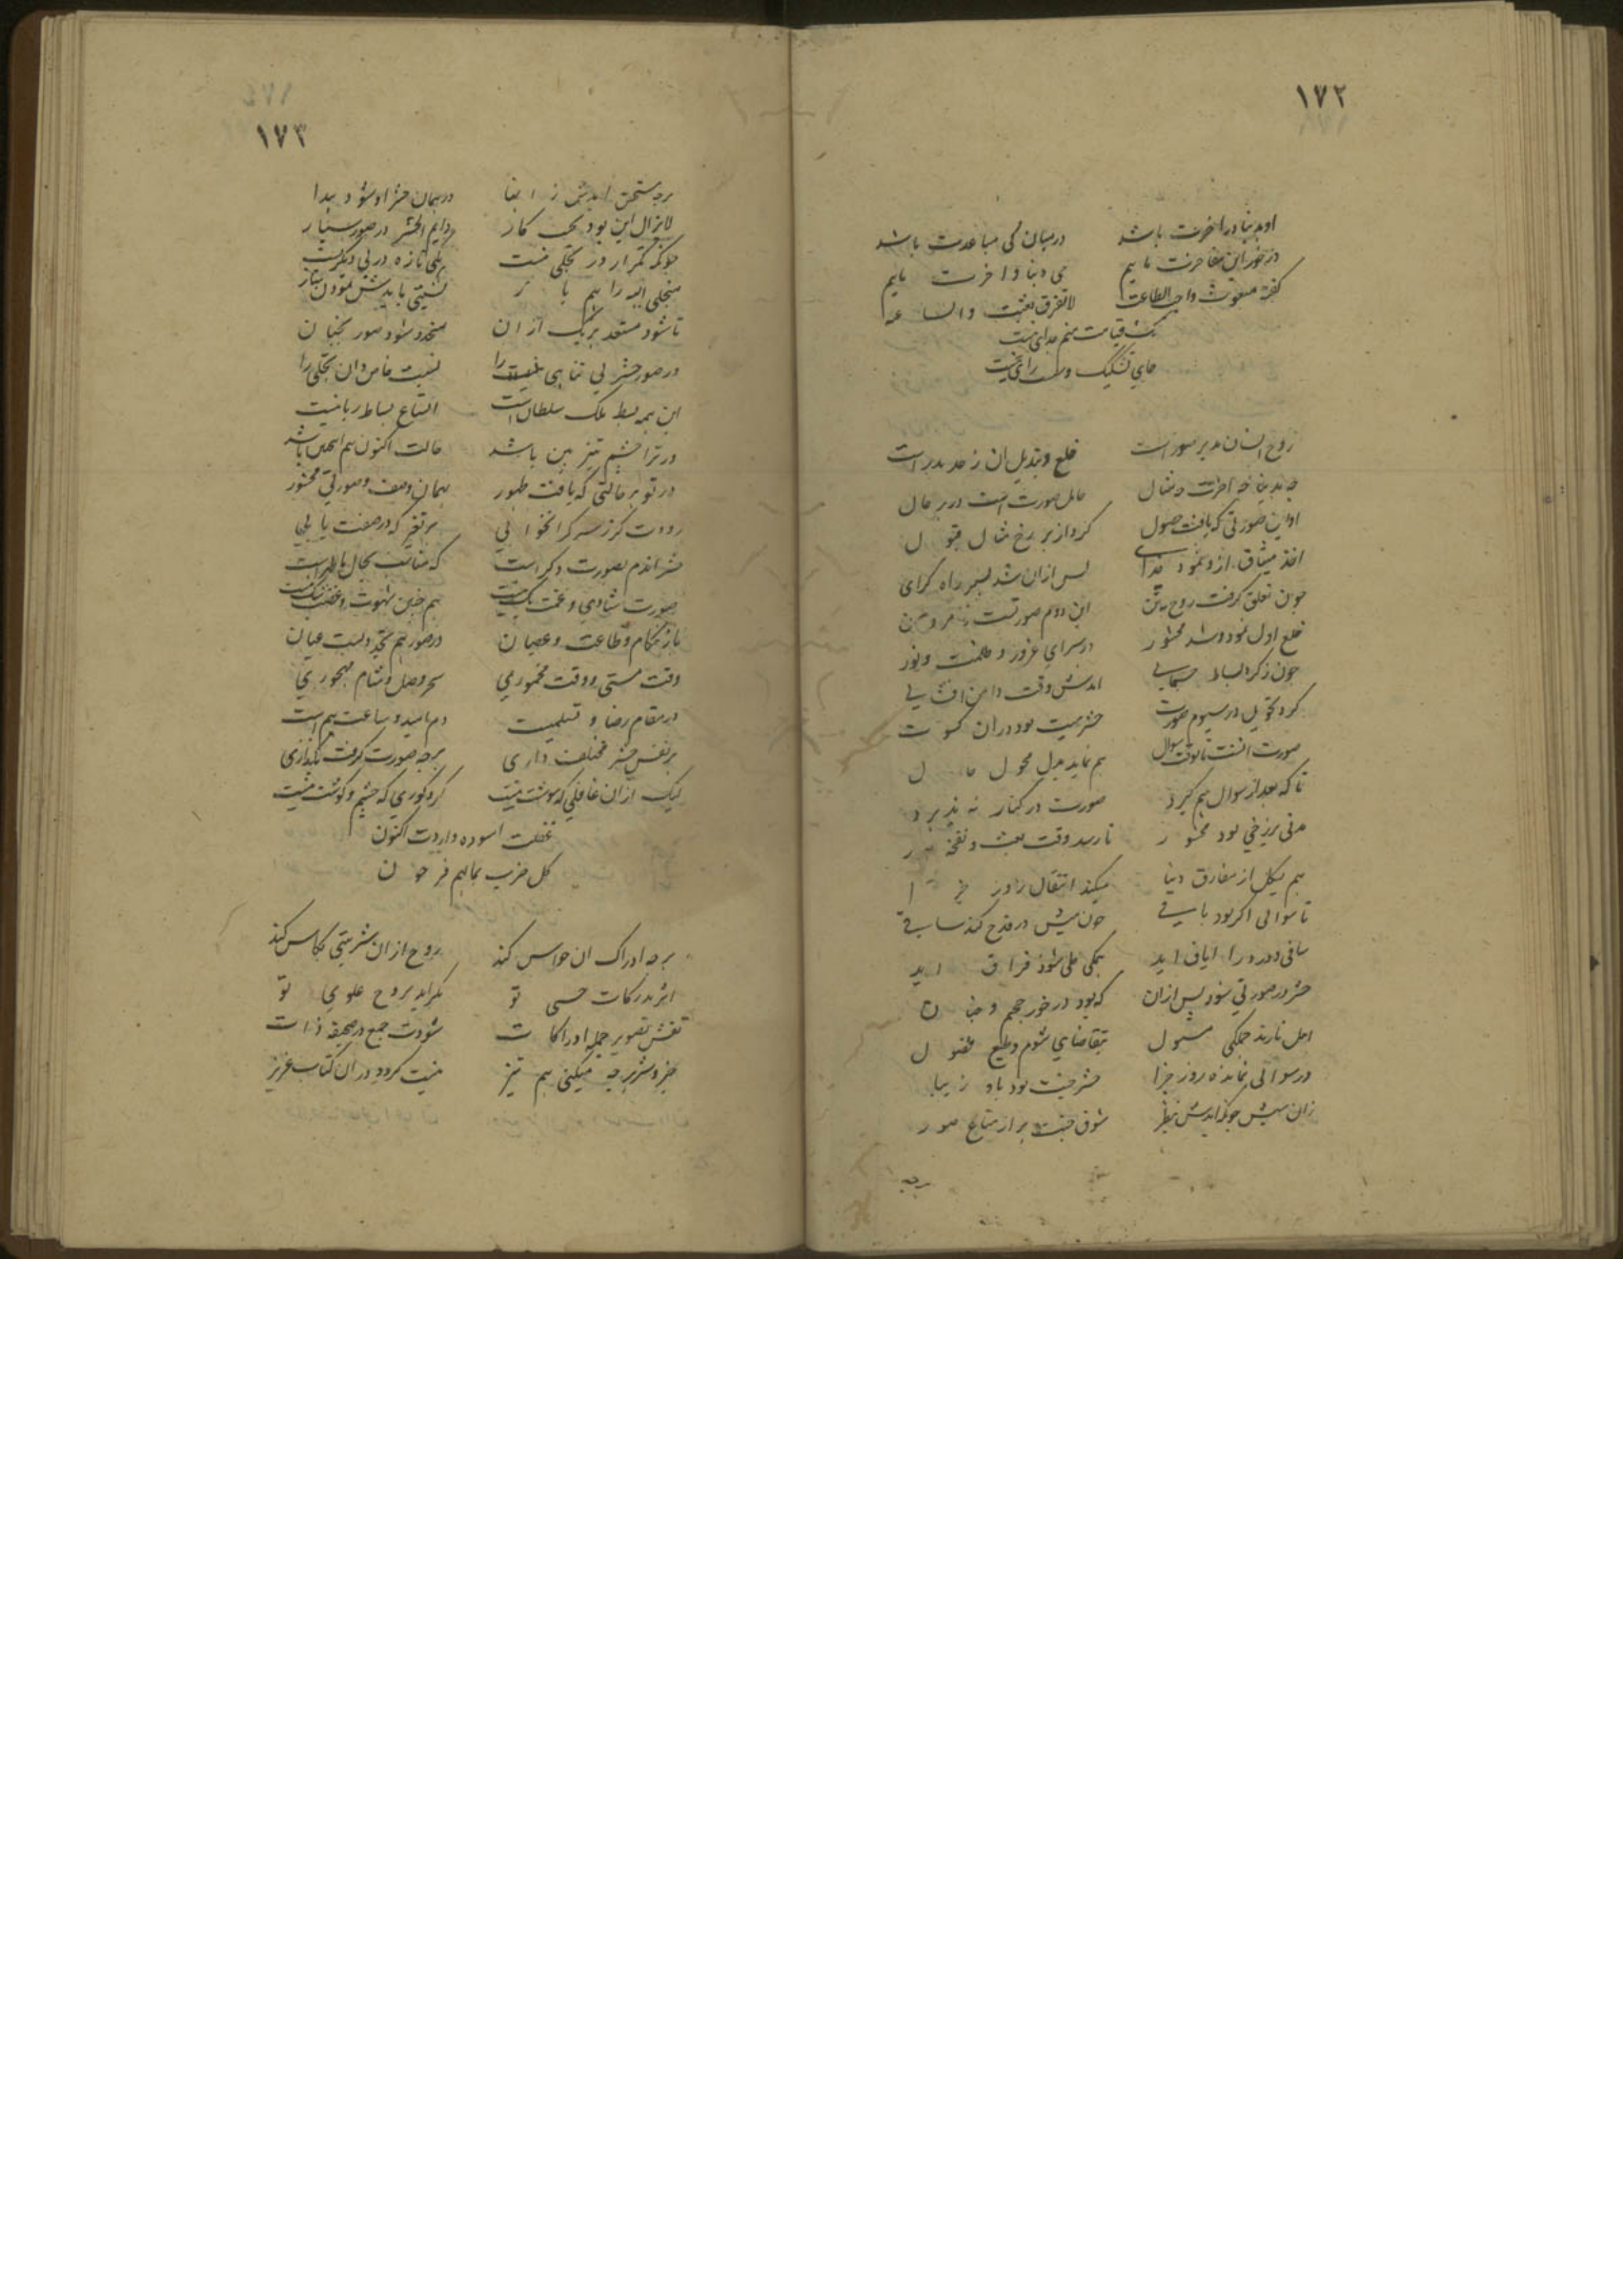 ١٧٢
او بدنیا در اخرت باشد درمیان کی مباعدت باشد
در خور این مفاخرت مایم می دنیا و اخرت مایم
گفته مبعوث واجب الطاعت لا تفرق بعثت والساعه
یک قیامت منم جدای نیست
جای تشکیک و سست رای نیست
روح انسان مدبر صور است خلع و تبدیل ان زحد بدر است
چه بدنیا چه اخرت چه مثال حامل صورت است در هر حال
اولین صورتی که یافت حصول کرد از بر رخ مثال قبول
اخذ میثاق ازو نمود خدای پس ازان شد بسیر راه گرای
چون تعلق گرفت روح بتن این دوم صورتست ز مرد و زن
خلع اول نمود و شد محشور در سرای غرور و ظلمت و نور
چون ز گرد بساط جسمانی ایدش وقت دامن افشانی
کرد تحویل در سیوم صورت حشر میت بود دران کسوت
صورت انست تا بوقت سوال هم نماید مبدل محول حال
تا که بعد از سوال هم گیرد صورت در کنار نه پذیرد
مدتی برزخی بود محشور تا رسد وقت بعث و نفخه صور
هم بیکل از مفارق دنیا میکند انتقال روز جزا
تا سوالی اگر بود باقی خون میش در قدح کند ساقی
ساقی دور را ایاق اید بمکی علی شود فراق اید
حشر در صورتی شود پس ازان که بود در خور جحیم و جنان
اهل نارند جملگی مسئول بتقاضای شوم و طبع فضول
در سوالی نمانده روز جزا حشر جنت بود باو زیبا
زان سپس چونکه ایدش بنظر شوق جنت پر از متاع صور
هرچه
١٧٣
هرچه مستحق ایدش ز ابقا در همان حشر او شود پیدا
لا یزال این بود بحب کار دایم الحشر در صور بسیار
چونکه تکرار در تجلی نیست بلی تازه در پی دگریست
متجلی الیه را هم باز نسبتی بایدش نمودن ساز
تا شود مستعد بهریک ازان متجدد شود صور بجنان
در صور حشر بی تناهی را نسبت خاص دان تجلی را
این همه بسط ملک سلطان است اتساع بساط ربانیست
ور ترا چشم تیز بین باشد حالت اکنون هم اینچنین باشد
در تو هر حالتی که یافت ظهور بهمان وصف و صورتی محشور
رودت گر ز سر گرانخوابی هر تغیر که در صفت یابی
حشر اندم بصورت دگر است که مناسب بحال باطن است
صورت شادی و غمت یک نیست هم چنین شهوت و غضب یک نیست
باز هنگام طاعت و عصیان در صور هم تجددیست عیان
وقت مستی و وقت مخموری سحر وصل و شام مهجوری
در مقام رضا و تسلیمیت دم امید و ساعت بیم است
هر نفس حشر مختلف داری هرچه صورت گرفت بگذاری
لیک ازان غافلی که هوشت نیست کر و کوری که چشم و گوشت نیست
غفلت اسوده داردت اکنون
کل حزب بمالهم فرحون
هرچه ادراک ان حواس کند روح ازان شربتی بکاس کند
اثر مدرکات حسی تو گراید بروح علوی تو
نقش تصویر جمله ادراکات شودت جمع در صحیفه ذات
خیر و شر هرچه میکنی هم نیز ثبت گردد دران کتاب عزیز